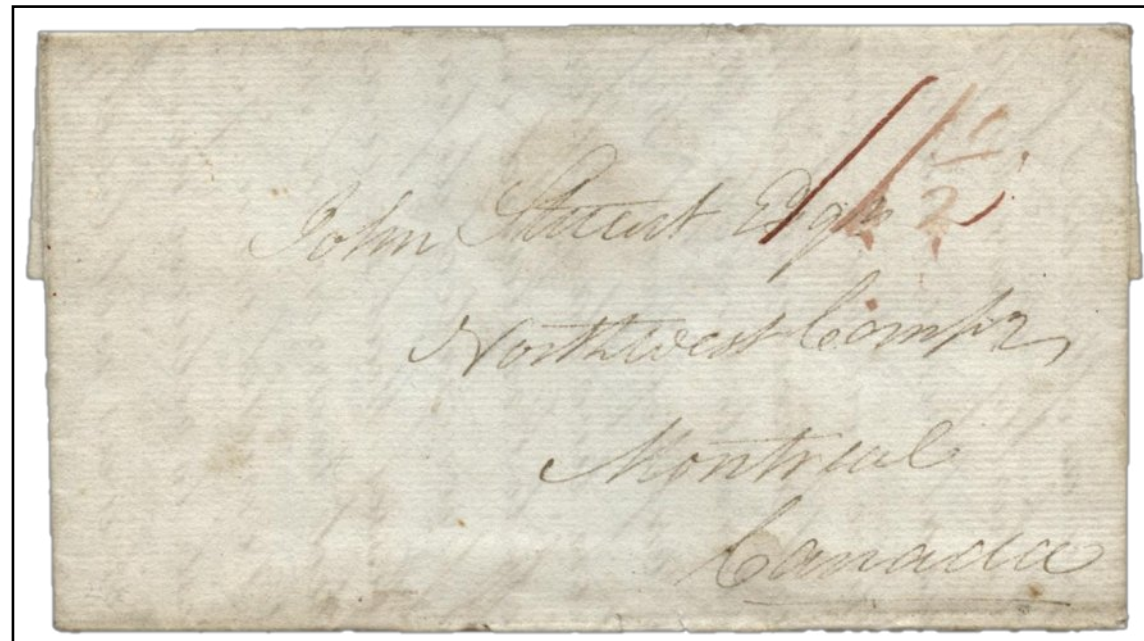 1/1½
John Stuart Esqr
Northwest Compy
Montreal
Canada